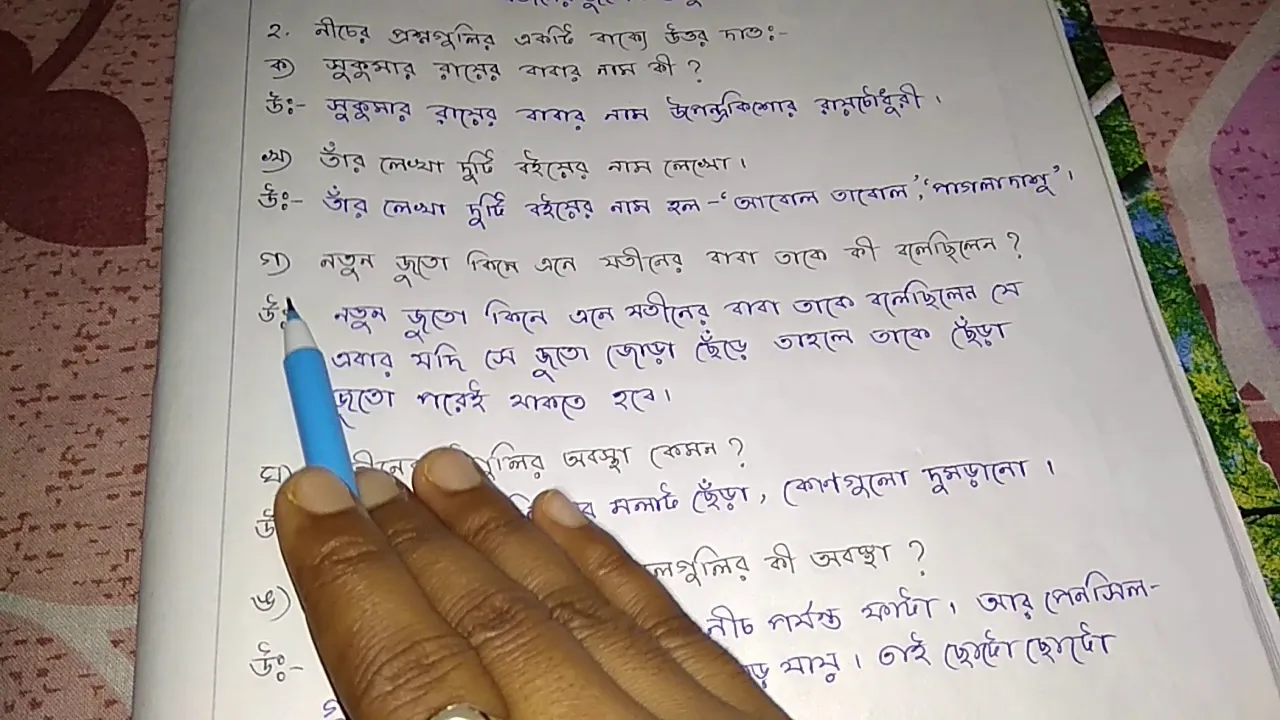 ২. নীচের প্রশ্নগুলির একটি বাক্যে উত্তর দাও:-
ক) সুকুমার রায়ের বাবার নাম কী ?
উঃ- সুকুমার রায়ের বাবার নাম উপেন্দ্রকিশোর রায়চৌধুরী ।
খ) তাঁর লেখা দুটি বইয়ের নাম লেখো ।
উঃ- তাঁর লেখা দুটি বইয়ের নাম হল -‘আবোল তাবোল’,‘পাগলা দাশু’ ।
গ) নতুন জুতো কিনে এনে যতীনের বাবা তাকে কী বলেছিলেন ?
উঃ নতুন জুতো কিনে এনে যতীনের বাবা তাকে বলেছিলেন যে
এবার যদি সে জুতো জোড়া ছেঁড়ে তাহলে তাকে ছেঁড়া
জুতো পরেই থাকতে হবে ।
ঘ) অবস্থা কেমন ?
মলাট ছেঁড়া , কোণগুলো দুমড়ানো ।
ঙ) কী অবস্থা ?
উঃ- নীচ পর্যন্ত ফাটা । আর পেনসিল-
যায় । তাই ছোটো ছোটো